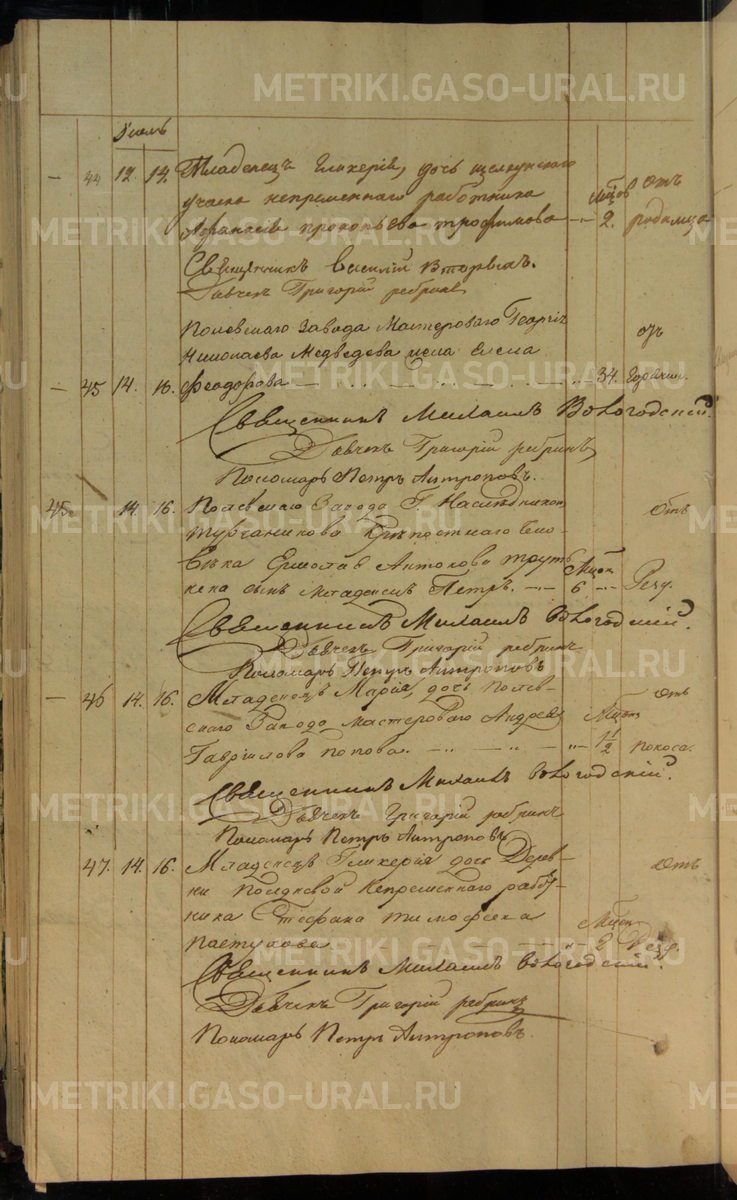 METRIKI.GASO-URAL.RU
Июль
— 44 12 14. Младенецъ Гликерія, дочь щелкунскаго
участка непременнаго работника мцов отъ
Афанасія прокопьева трофимова — 2. родимца
Священникъ василій
Дьячекъ Григорій ребринъ
Полевскаго Завода Мастероваго Георгія отъ
Николаева Медведева жена елена
— 45 14. 16. феодорова — 34. горячки.
Священникъ Михаилъ Вологодскій.
Дьячекъ Григорій ребринъ
Пономарь Петръ Антроповъ.
45. 14. 16. Полевскаго Завода Г. Наследников отъ
турчанинова Крепостнаго Чело-
века Антонова Мцов
сынъ Младенецъ Петръ. — 6 — Резу.
Священникъ Михаилъ вологодскій.
Дьячекъ Григорій ребринъ
Пономарь Петръ Антроповъ
— 46 14. 16. Младенецъ Марія, дочь полев- отъ
скаго Завода мастероваго Андрея
Гаврилова попова. — 1/2 поноса.
Священникъ Михаилъ вологодскій.
Дьячекъ Григорій ребринъ
Пономарь Петръ Антроповъ
47. 14. 16. Младенецъ Гликерія дочь Дерев- отъ
ни полдневой непременнаго работ-
ника Стефана тимофеева Мцов
пастухова — 2 Резу.
Священникъ Михаилъ вологодскій.
Дьячекъ Григорій ребринъ
Пономарь Петръ Антроповъ.